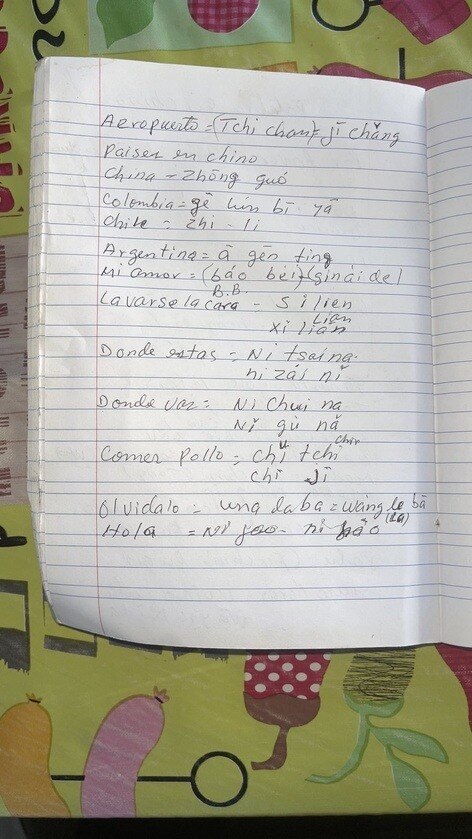 Aeropuerto = (Tchi chan) = jī chǎng
Paises en chino
China = Zhōng guó
Colombia = gē lún bǐ - yā
Chile = Zhi - li
Argentina = ā gēn tíng
Mi amor = (bǎo bèi) (qinài de)
B.B.
Lavarse la cara = si lien
xi liǎn
Lian
Donde estas = Ni tsai na
ni zài nǐ
Donde vas = Ni chui na
Nǐ qù nǎ
Comer pollo = chī tchi
chī jī
Olvidalo = una la ba = wàng le bā
(la)
Hola = Ni jao - ni hǎo